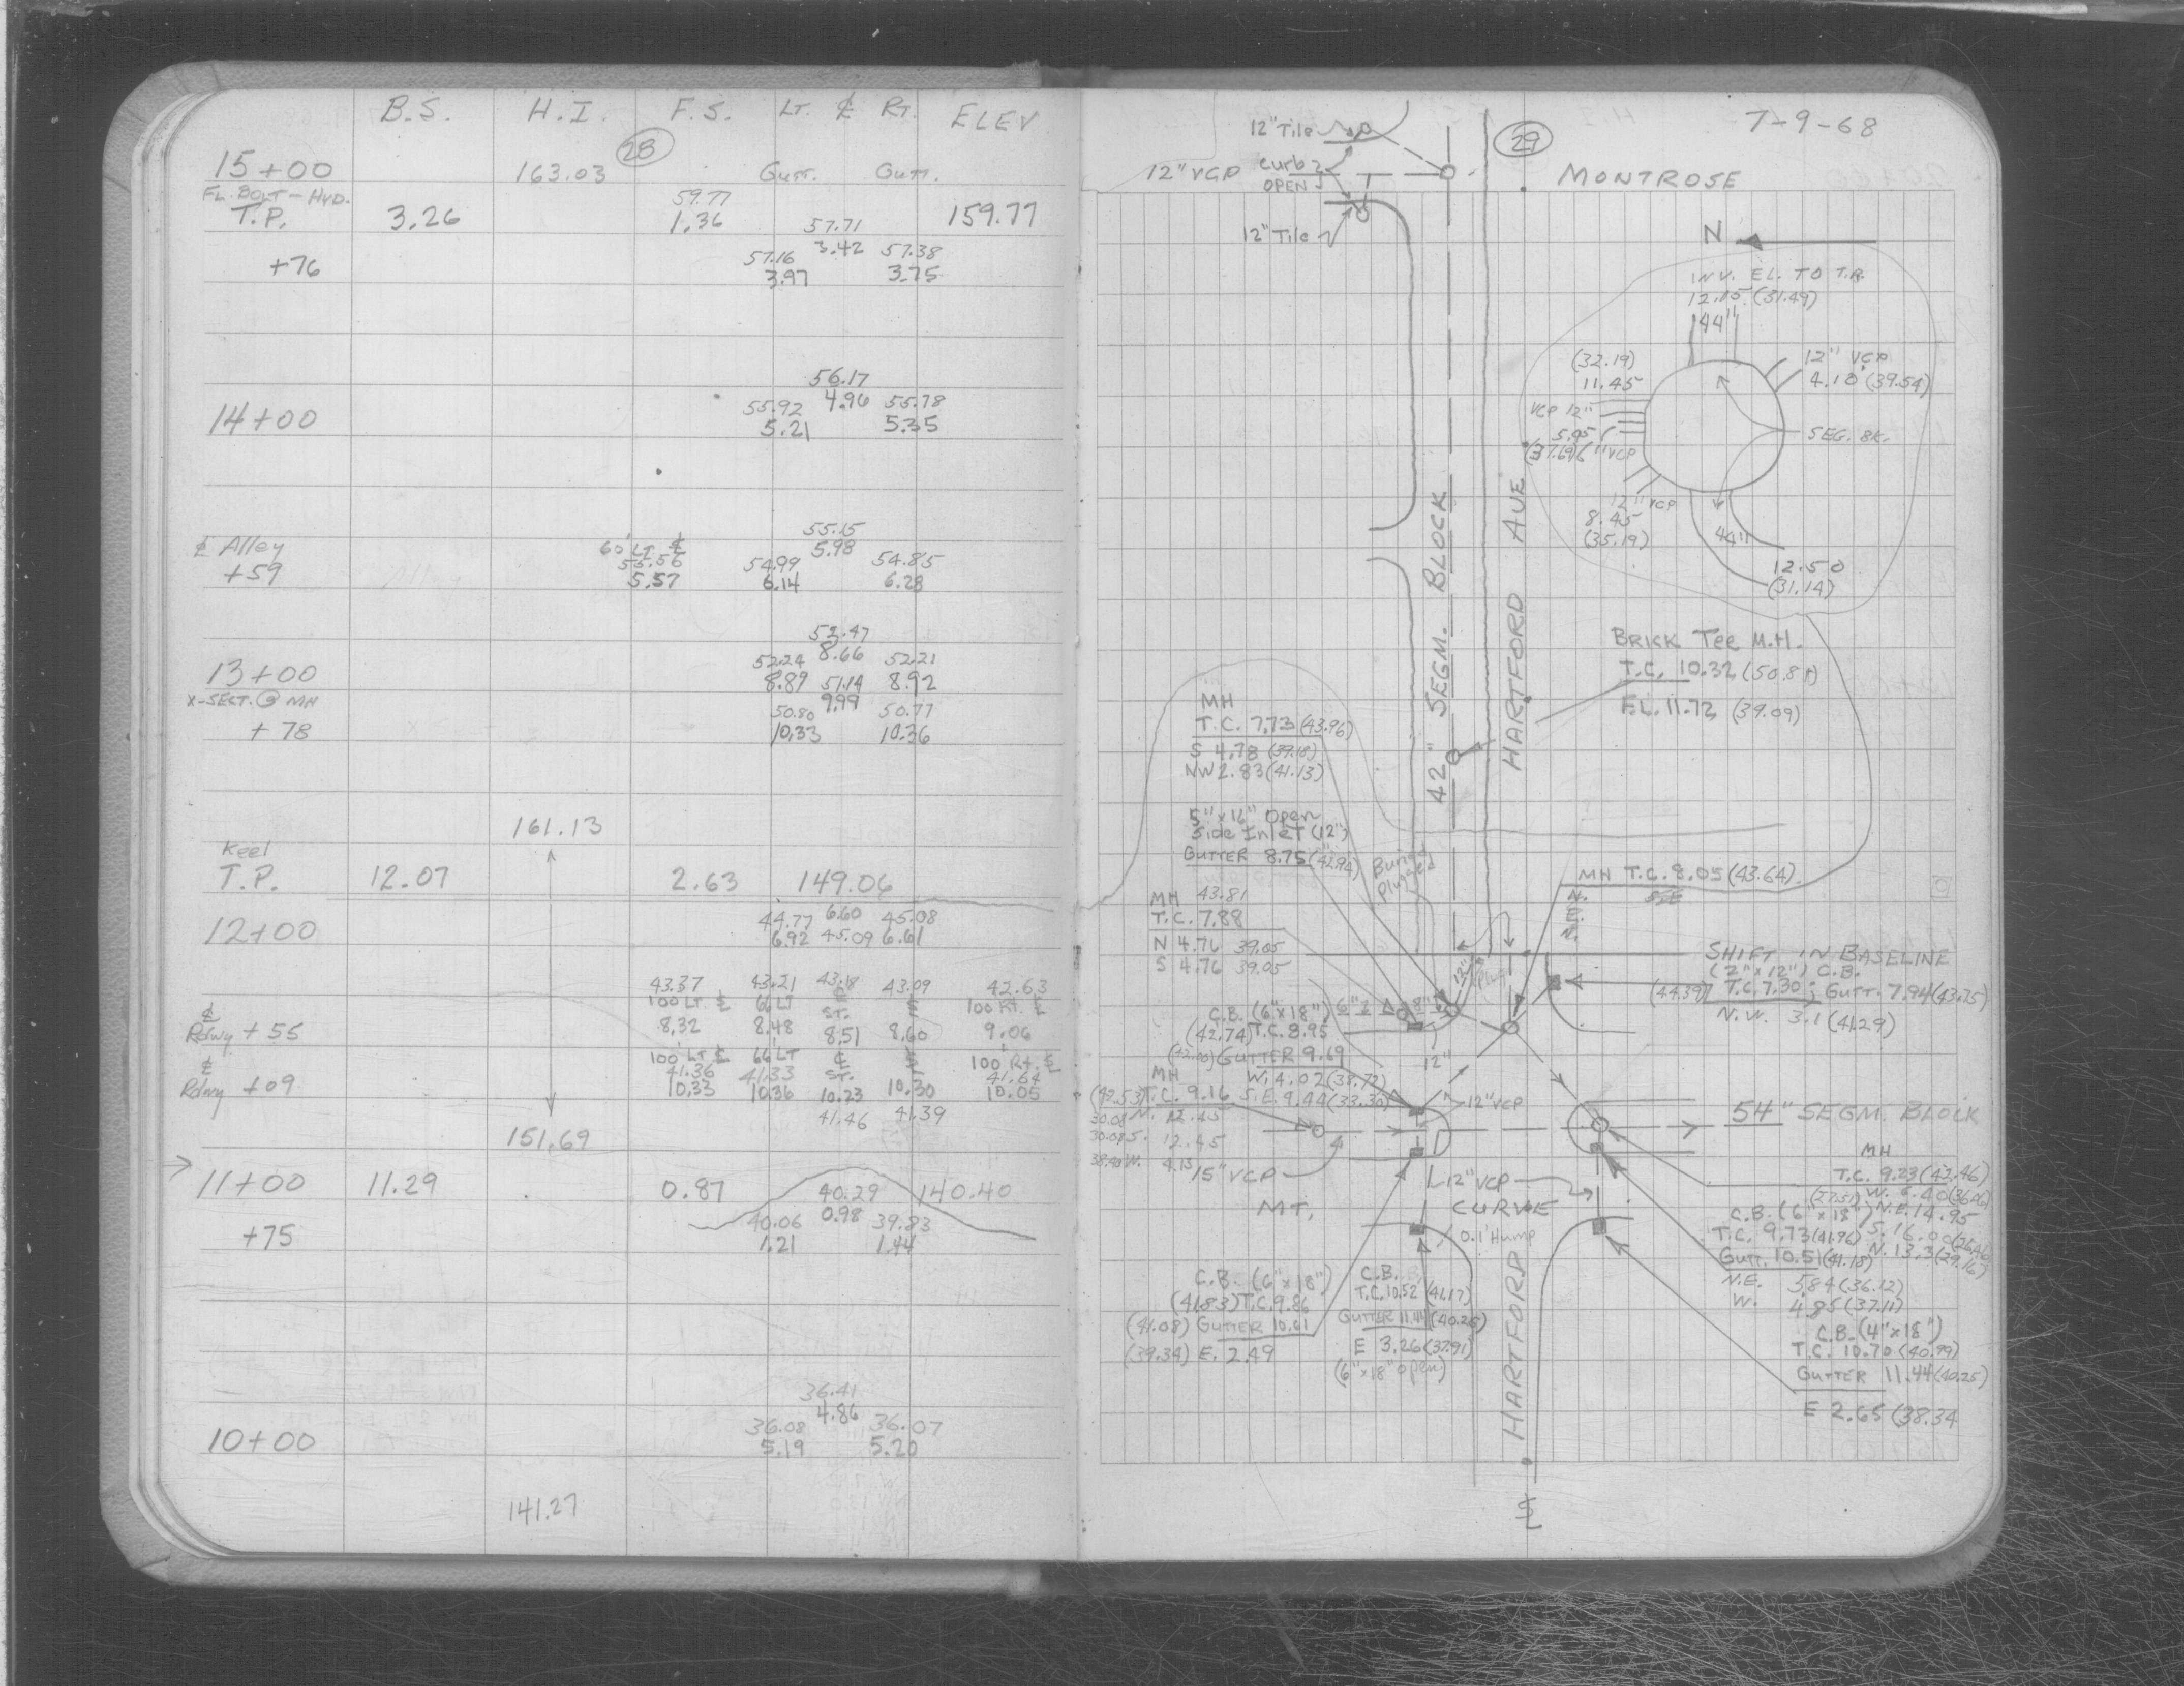 B.S. H.I. F.S. LT. ℄ RT. ELEV
28
15+00 163.03 Gutt. Gutt.
FL. BOLT - HYD. 59.77
T.P. 3.26 1.36 57.71 159.77
57.16 3.42 57.38
+76 3.97 3.75
56.17
55.92 4.96 55.78
14+00 5.21 5.35
55.15
℄ Alley 60' LT ℄ 5.98
55.56 54.99 54.85
+59 5.57 6.14 6.28
52.24 8.66 52.21
13+00 8.89 51.14 8.92
X-SECT. @ MH 9.99
50.80 50.77
+78 10.33 10.36
161.13
Keel
T.P. 12.07 2.63 149.06
44.77 6.60 45.08
12+00 6.92 45.09 6.61
43.37 43.21 43.18 43.09 42.63
100 LT ℄ 66 LT ℄ 100 RT. ℄
℄ ST.
Rdwy +55 8.32 8.48 8.51 8.60 9.06
100' LT ℄ 66' LT ℄ 100' Rt. ℄
℄ 41.36 41.33 ST. 41.64
Rdwy +09 10.33 10.36 10.23 10.30 10.05
41.46 41.39
151.69
11+00 11.29 0.87 40.29 140.40
40.06 0.98 39.83
+75 1.21 1.44
36.41
36.08 4.86 36.07
10+00 5.19 5.20
141.27
29
7-9-68
12" Tile
12" VCP
Curb
OPEN
12" Tile
MONTROSE
N
INV. EL. TO T.R.
12.15 (31.49)
44"
(32.19)
11.45
12" VCP
4.10 (39.54)
VCP 12"
5.95
(37.69) 6" VCP
SEG. BK.
12" VCP
8.45
(35.19)
44"
12.50
(31.14)
42" SEGM. BLOCK
HARTFORD AVE
BRICK TEE M.H.
T.C. 10.32 (50.81)
F.L. 11.72 (39.09)
MH
T.C. 7.73 (43.96)
S 4.78 (39.18)
NW 2.83 (41.13)
5" x 16" Open
Side Inlet (12")
GUTTER 8.75 (42.94)
Buried
Plugged
MH T.C. 8.05 (43.64)
N.
E.
MH 43.81
T.C. 7.88
N 4.76 39.05
S 4.76 39.05
12"
Plug
SHIFT IN BASELINE
(2" x 12") C.B.
(44.39) T.C. 7.30; GUTT. 7.94 (43.75)
N.W. 3.1 (41.29)
C.B. (6" x 18")
(42.74) T.C. 8.95
GUTTER 9.69
W. 4.02 (38.72)
12"
MH
(42.53) T.C. 9.16 S.E. 9.44 (33.30)
30.08 N. 12.45
30.08 S. 12.45
38.40 W. 4.13
15" VCP
12" VCP
54" SEGM. BLOCK
12" VCP
MT. CURVE
0.1' Hump
MH
T.C. 9.23 (42.46)
W. 6.40 (36.06)
(27.51) N.E. 14.95
S. 16.00 (26.46)
N. 13.3 (29.16)
C.B. (6" x 18")
T.C. 9.73 (41.96)
GUTT. 10.51 (41.18)
N.E. 5.84 (36.12)
W. 4.85 (37.11)
C.B. (6" x 18")
(41.83) T.C. 9.86
(41.08) GUTTER 10.61
(39.34) E. 2.49
C.B.
T.C. 10.52 (41.17)
GUTTER 11.44 (40.25)
E 3.26 (37.91)
(6" x 18" Open)
HARTFORD
C.B. (4" x 18")
T.C. 10.70 (40.99)
GUTTER 11.44 (40.25)
E 2.65 (38.34
℄